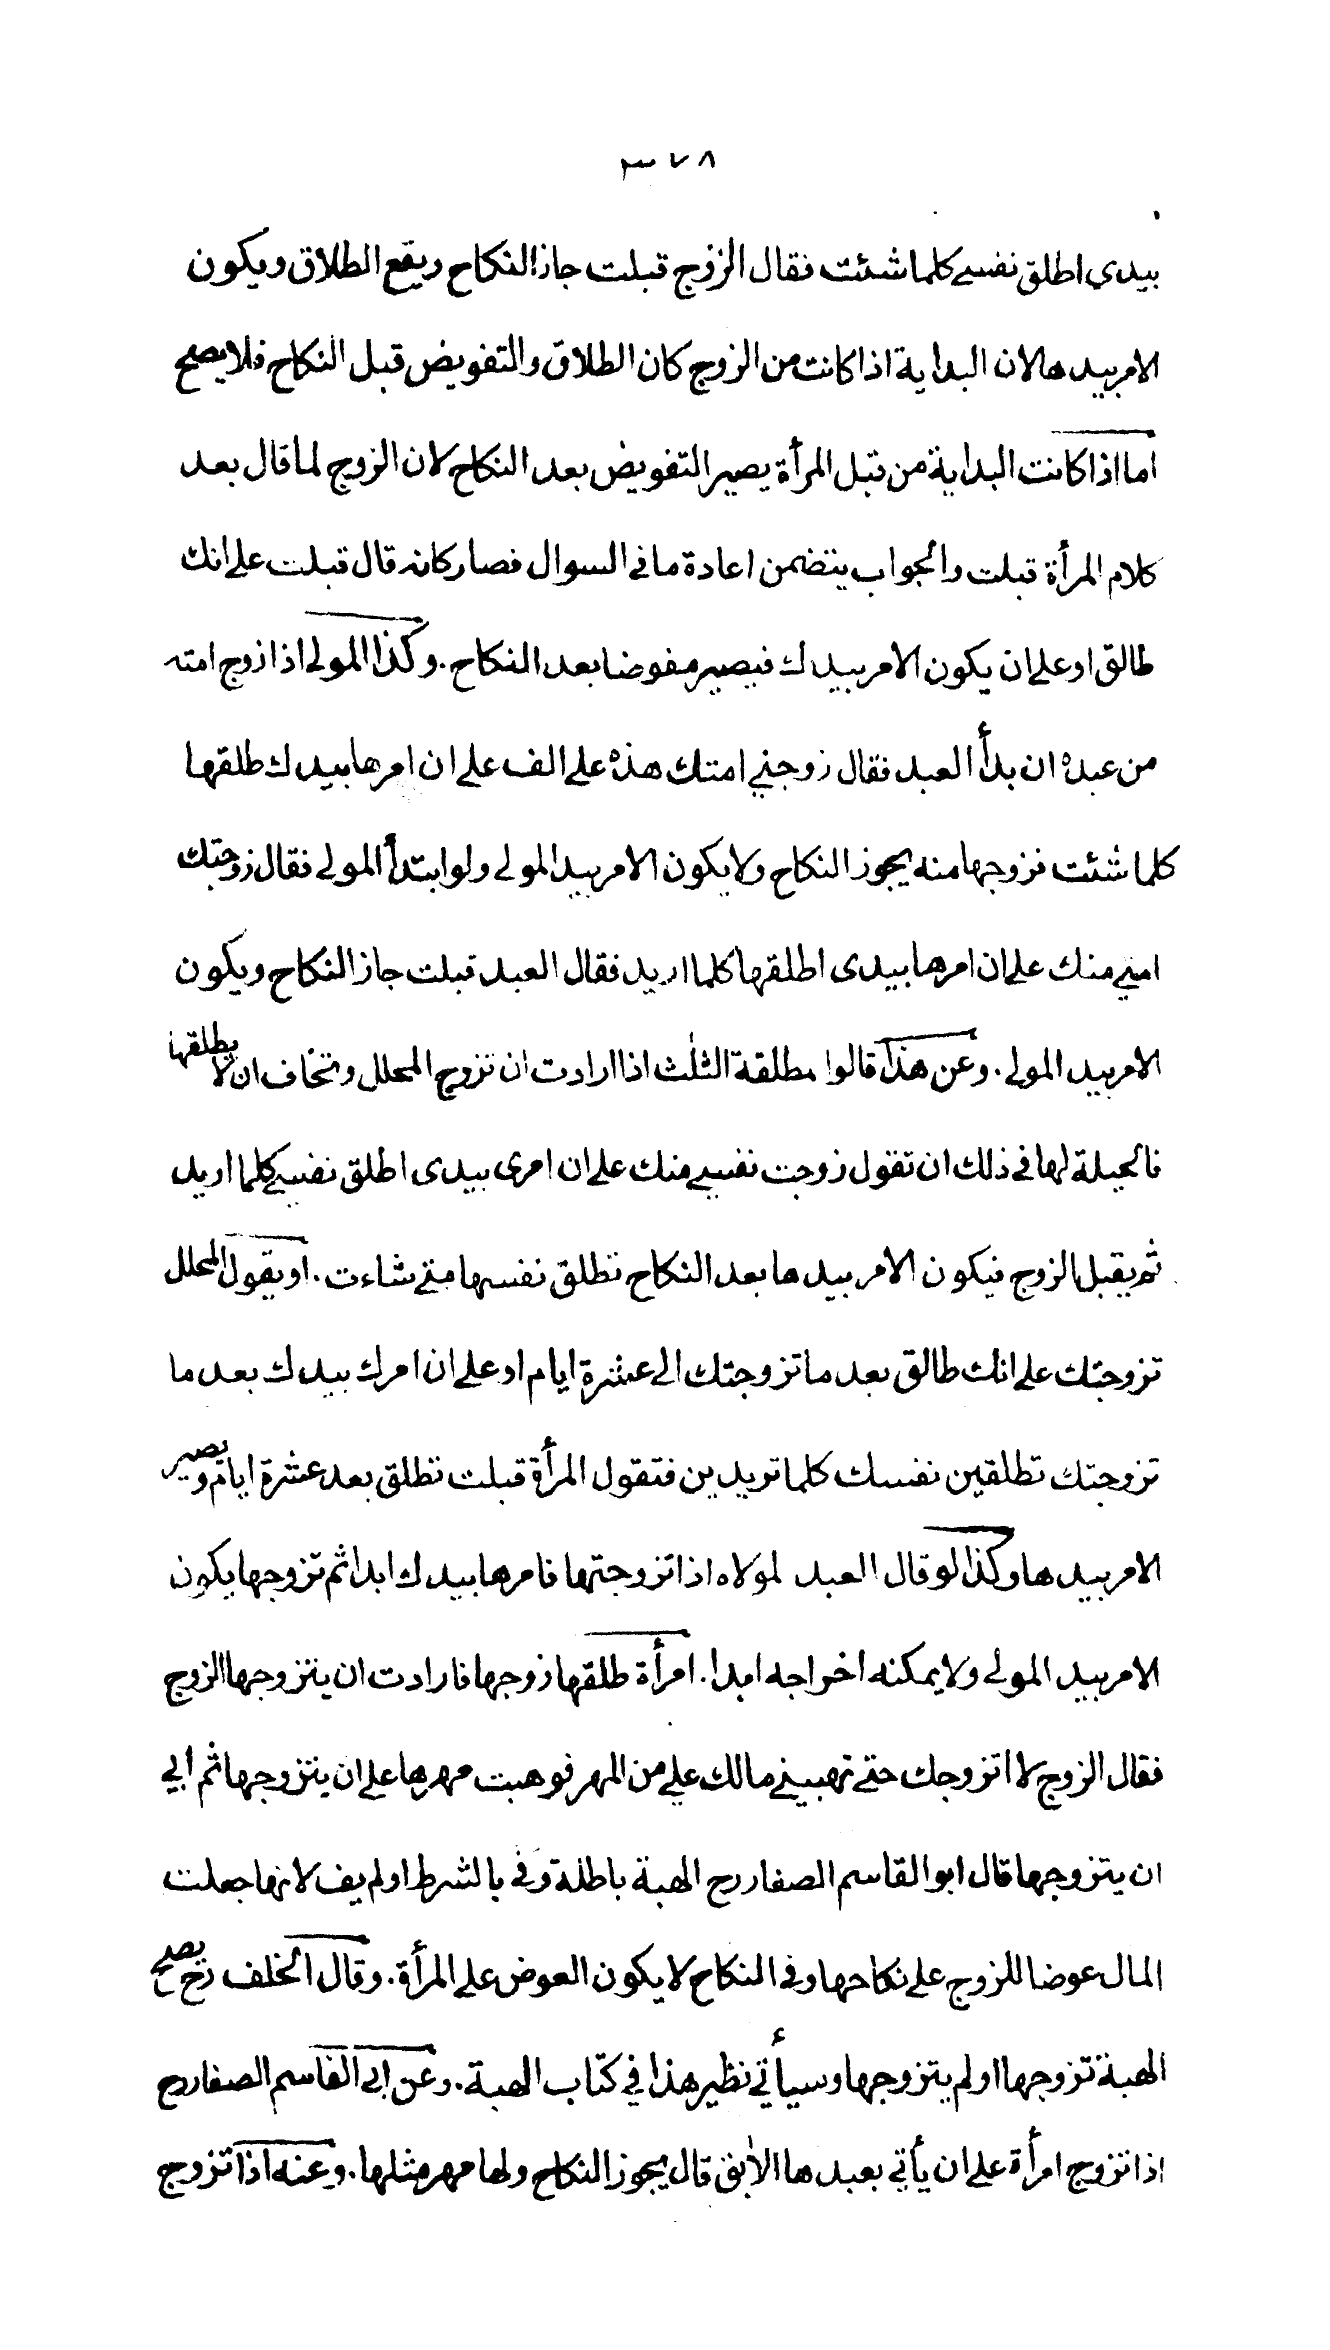 ٣٧٨
بيدى اطلق نفسي كلما شئت فقال الزوج قبلت جاز النكاح ويقع الطلاق ويكون
الامر بيدها لان البداية اذا كانت من الزوج كان الطلاق والتفويض قبل النكاح فلا يصح
اما اذا كانت البداية من قبل المرأة يصير التفويض بعد النكاح لان الزوج لما قال بعد
كلام المرأة قبلت والجواب يتضمن اعادة ما في السوال فصار كانه قال قبلت على انك
طالق او على ان يكون الامر بيدك فيصير مفوضا بعد النكاح. وكذا المولى اذا زوج امته
من عبده ان بدأ العبد فقال زوجني امتك هذه على الف على ان امرها بيدك طلقها
كلما شئت فزوجها منه يجوز النكاح ولا يكون الامر بيد المولى ولو ابتدأ المولى فقال زوجتك
امتي منك على ان امرها بيدى اطلقها كلما اريد فقال العبد قبلت جاز النكاح ويكون
الامر بيد المولى. وعن هذا قالوا مطلقة الثلٰث اذا ارادت ان تزوج المحلل وتخاف ان لا يطلقها
فالحيلة لها في ذلك ان تقول زوجت نفسي منك على ان امرى بيدى اطلق نفسي كلما اريد
ثم يقبل الزوج فيكون الامر بيدها بعد النكاح تطلق نفسها متى شاءت. او يقول المحلل
تزوجتك على انك طالق بعد ما تزوجتك الى عشرة ايام او على ان امرك بيدك بعد ما
تزوجتك تطلقين نفسك كلما تريدين فتقول المرأة قبلت تطلق بعد عشرة ايام ويصير
الامر بيدها وكذا لو قال العبد لمولاه اذا تزوجتها فامرها بيدك ابدا ثم تزوجها يكون
الامر بيد المولى ولا يمكنه اخراجه ابدا. امرأة طلقها زوجها فارادت ان يتزوجها الزوج
فقال الزوج لا اتزوجك حتى تهبيني مالك علي من المهر فوهبت مهرها على ان يتزوجها ثم ابى
ان يتزوجها قال ابو القاسم الصفار رح الهبة باطلة وفى بالشرط او لم يف لانها جعلت
المال عوضا للزوج على نكاحها وفي النكاح لا يكون العوض على المرأة. وقال الخلف رح يصح
الهبة تزوجها او لم يتزوجها وسيأتي نظير هذا في كتاب الهبة. وعن ابى القاسم الصفار رح
اذا تزوج امرأة على ان يأتي بعبدها الاٰبق قال يجوز النكاح ولها مهر مثلها. وعنه اذا تزوج